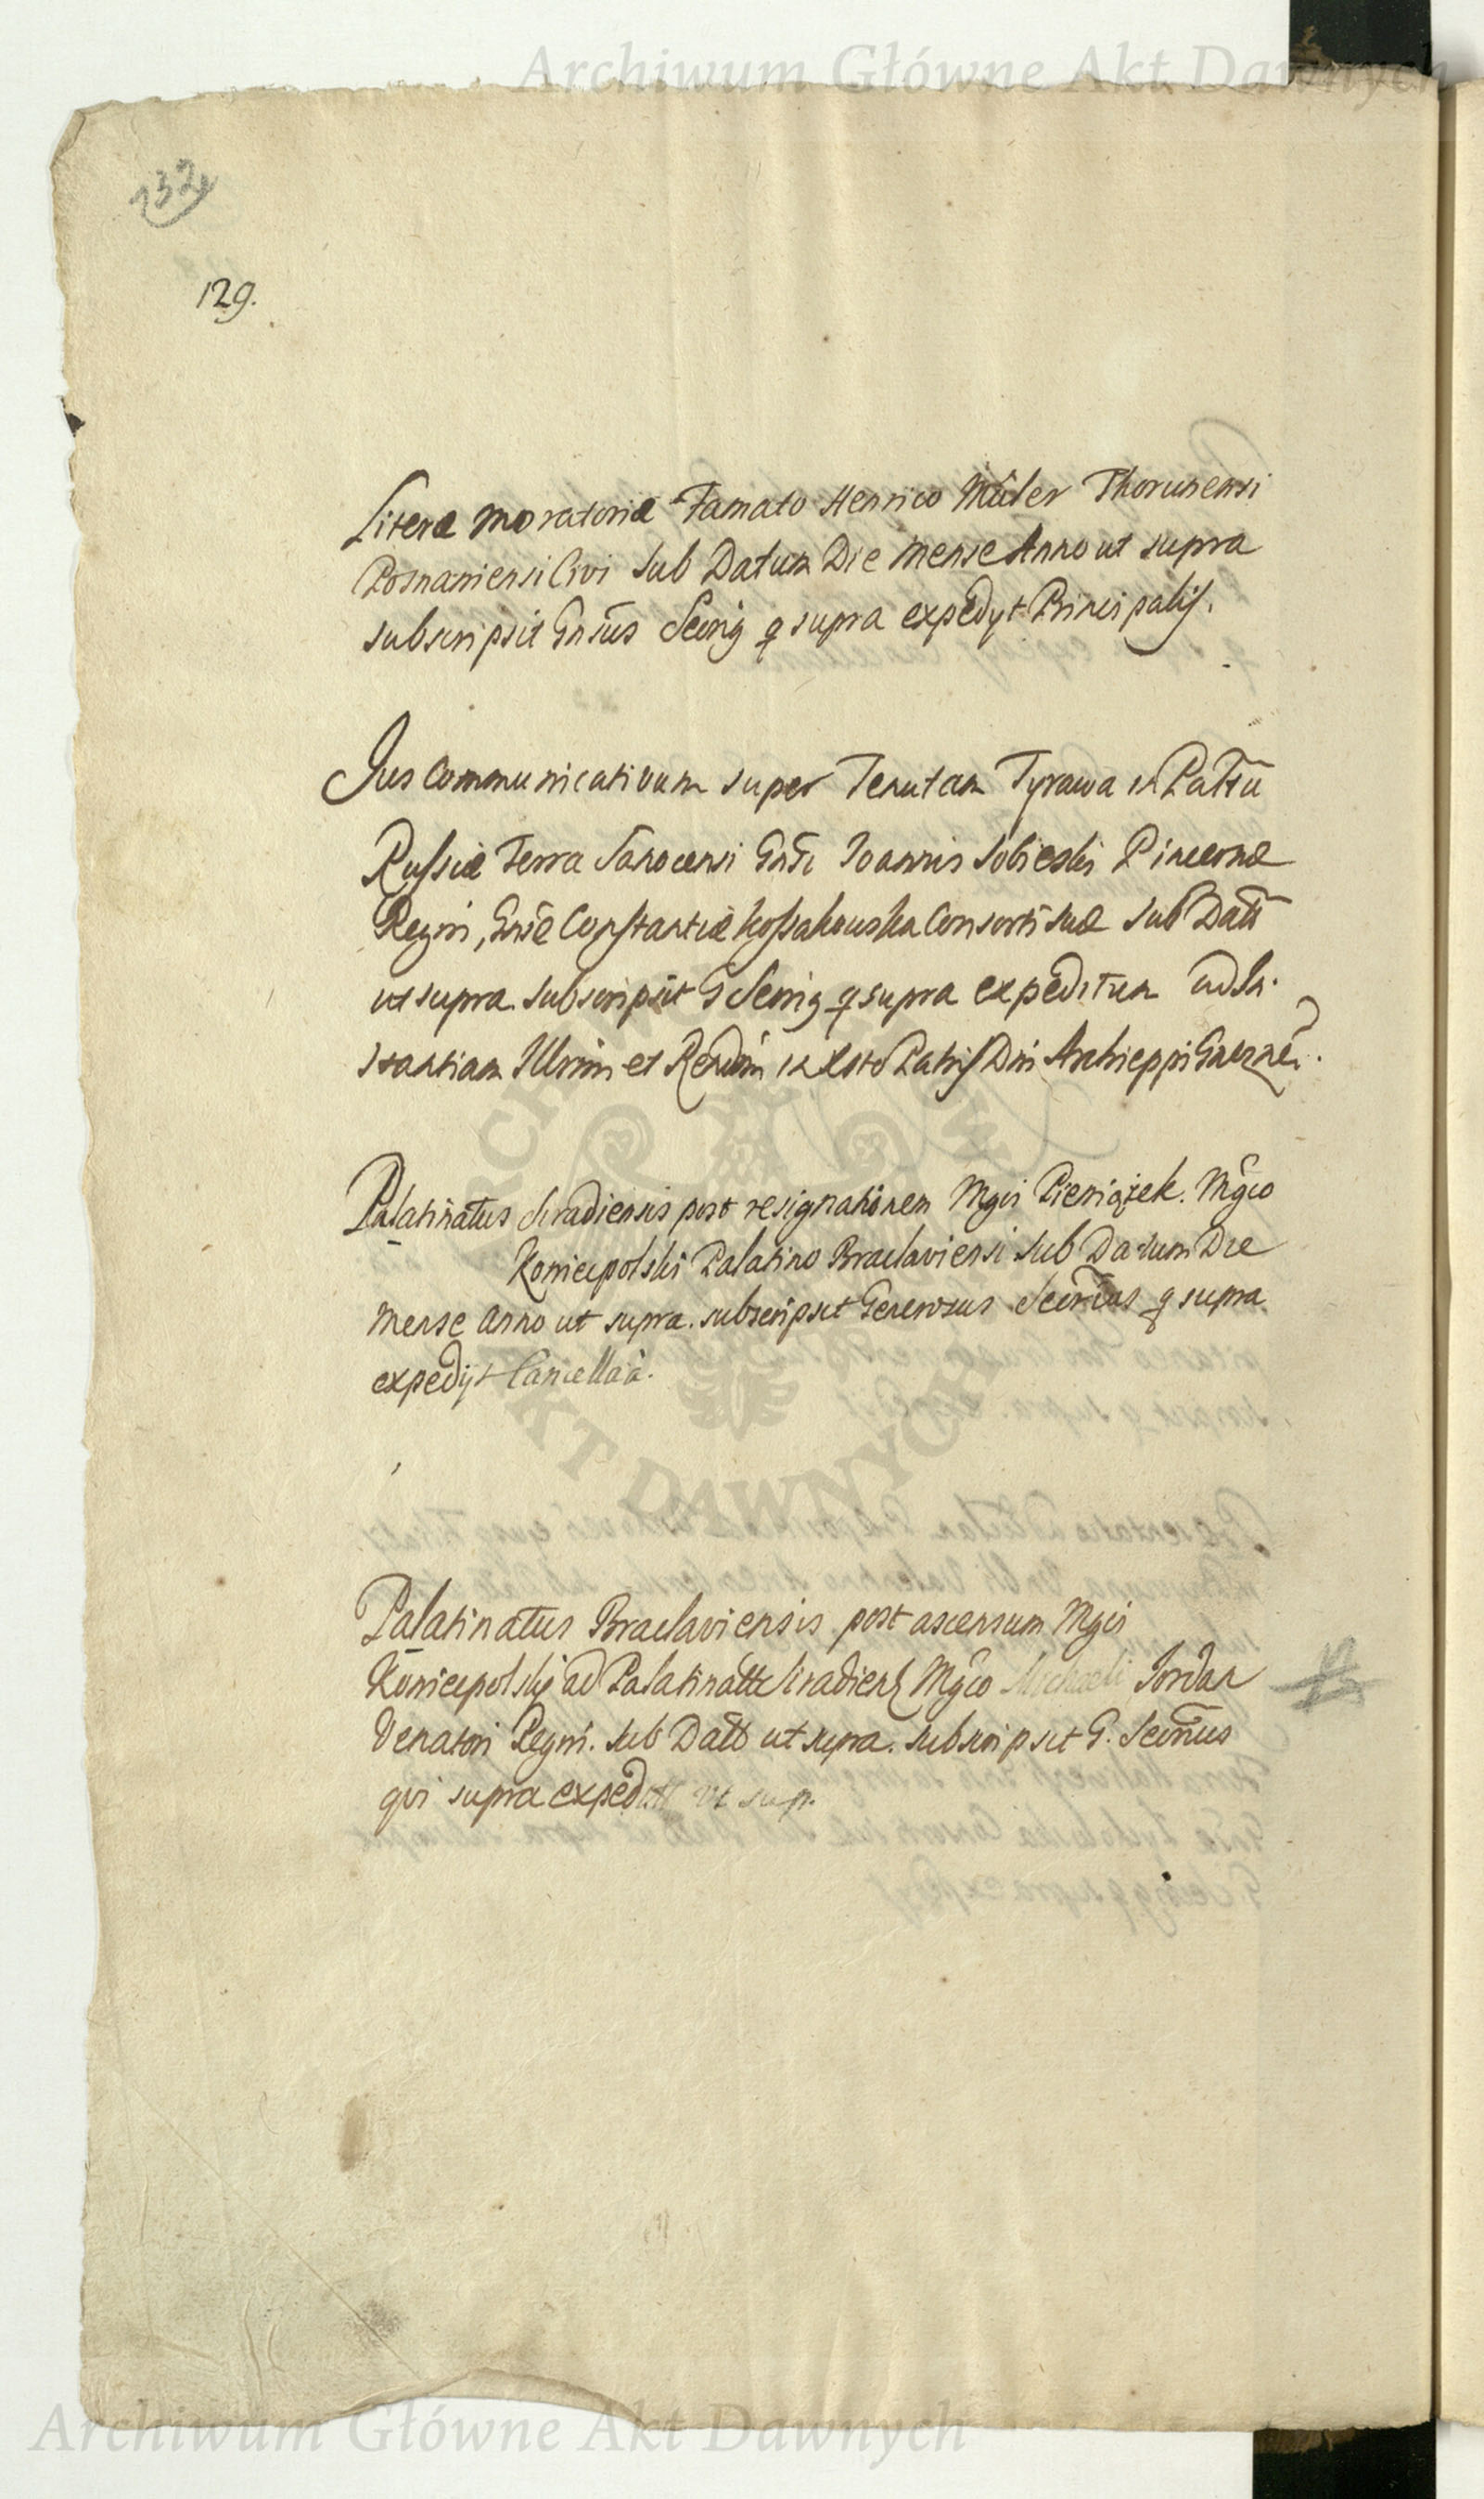 Archiwum Główne Akt Dawnych
132
129.
Literæ moratoriæ Famato Henrico Müler Thorunensi
Posnaniensi Civi sub Datum Die Mense Anno ut supra
subscripsit Gnsus Secrig q supra expedyt Principalis.
Jus Communicativum super Tenutam Tyrawa in Pattu
Russiæ Terra Sanocensi Gnsi Joannis Sobieski Pincernæ
Regni, Gnsæ Constantiæ Kossakouska Consorti suæ sub Datt
ut supra subscripsit G Secrig q supra expeditum ad In-
stantiam Illrmi et Rendmi in Xsto Patris Dni Archieppi Gneznen.
Palatinatus Siradiensis post resignationem Mgci Pieniążek. Mgco
Koniecpolski Palatino Braclaviensi sub Datum Die
Mense Anno ut supra. subscripsit Generosus Secrius q supra
expedyt Cancellaa.
Palatinatus Braclaviensis post ascensum Mgci
Koniecpolskij ad Palatinatu Siradiens Mgco Michaeli Jordan
Venatori Regni. sub Datt ut supra. subscripsit G. Secrius
qui supra expedatt ut sup.
ARCHIWUM GŁÓWNE AKT DAWNYCH
Archiwum Główne Akt Dawnych